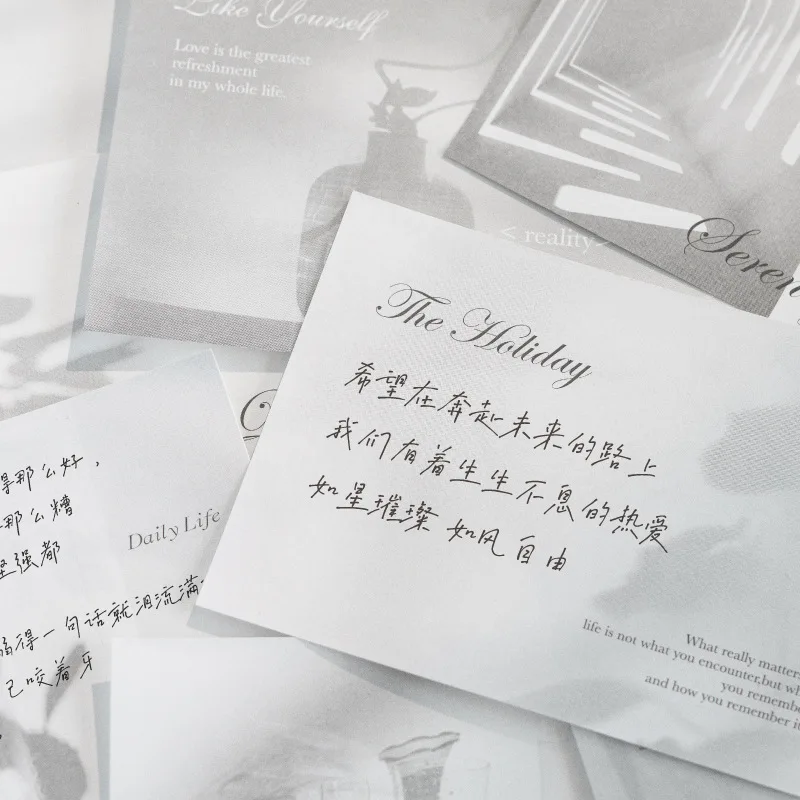 Like Yourself
Love is the greatest
refreshment
in my whole life.
< reality>
Seren
The Holiday
希望在奔赴未来的路上
我们有着生生不息的热爱
如星璀璨 如风自由
What really matters
life is not what you encounter,but wh
you remembe
and how you remember it
得那么好，
那么糟
坚强都
Daily Life
得一句话就泪流满
己咬着牙